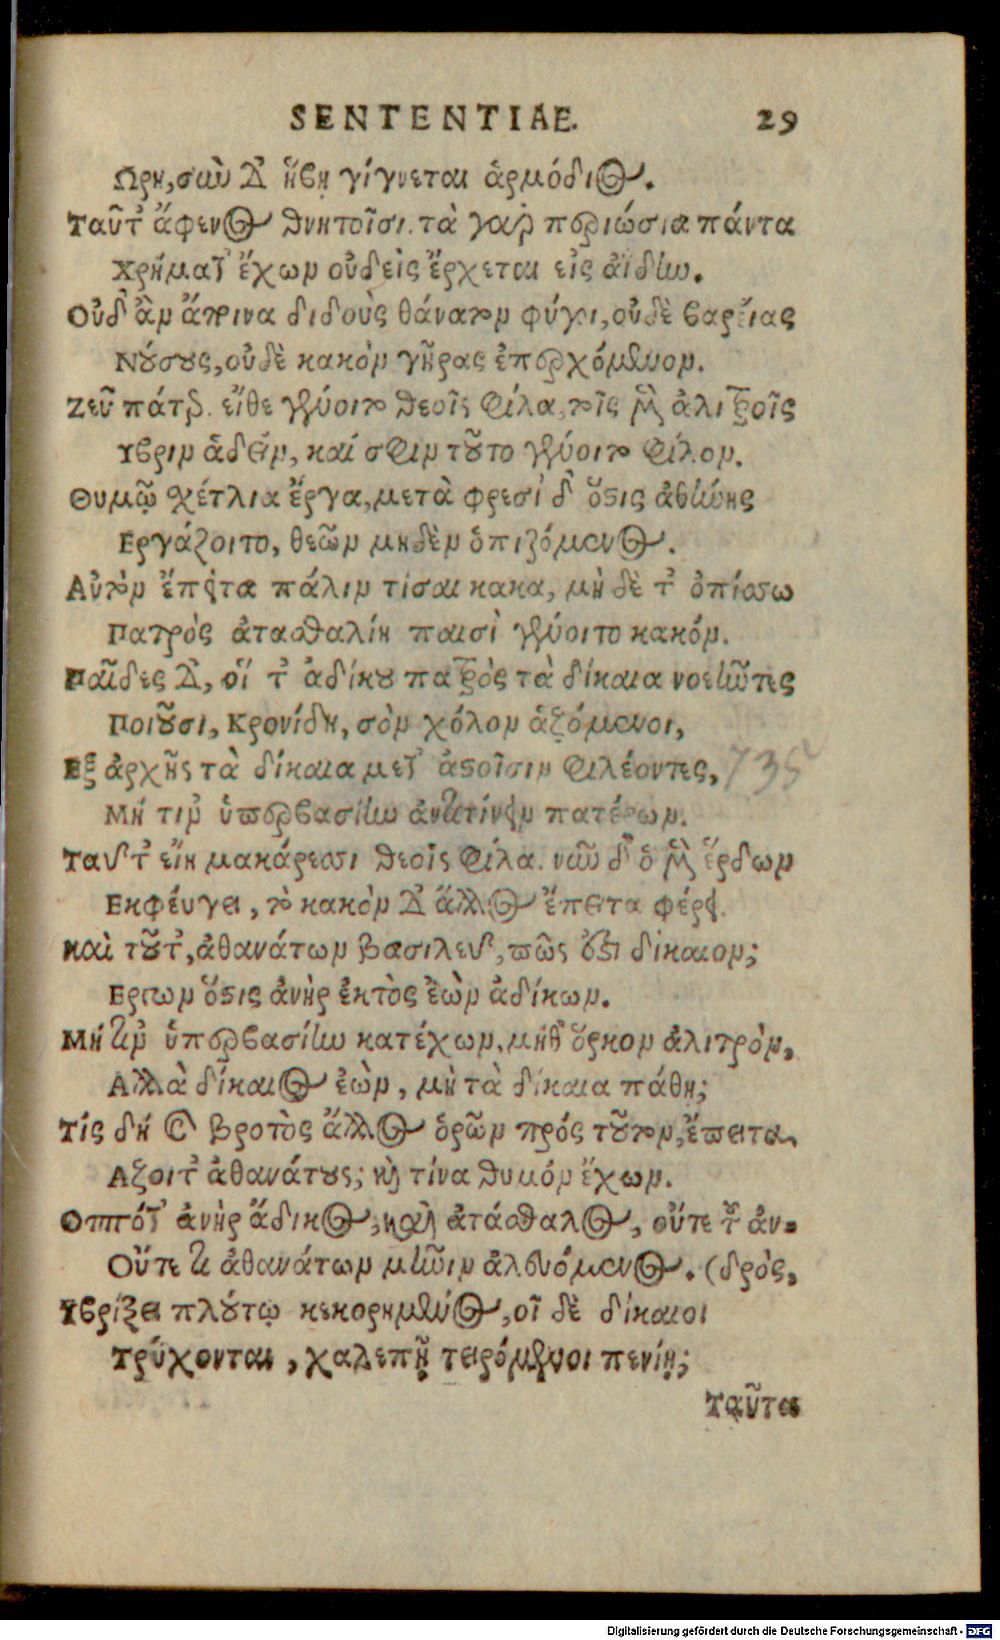 SENTENTIAE. 29
Ωρη, σαὺ δ' ἥβη γίγνεται ἁρμόδιος.
Ταῦτ' ἄφενος θνητοῖσι. τὰ γαρ περιώσια πάντα
Χρήματ' ἔχων οὐδεὶς ἔρχεται εἰς ἀΐδην.
Οὐδ' ἂν ἄποινα διδοὺς θάνατον φύγοι, οὐδὲ βαρείας
Νούσους, οὐδὲ κακὸν γῆρας ἐπερχόμενον.
Ζεῦ πάτερ. εἴθε γένοιτο θεοῖς φίλα, τοῖς μὲν ἀλιτροῖς
Υβριν ἁδεῖν, καί σφιν τοῦτο γένοιτο φίλον.
Θυμῷ σχέτλια ἔργα, μετὰ φρεσὶ δ' ὅστις ἀθήνης
Εργάζοιτο, θεῶν μηδὲν ὀπιζόμενος.
Αὐτὸν ἔπειτα πάλιν τίσαι κακα, μὴ δὲ τ' ὀπίσσω
Πατρὸς ἀτασθαλίη παισὶ γένοιτο κακόν.
Παῖδες δ', οἵ τ' ἀδίκου πατρὸς τὰ δίκαια νοεῦντες
Ποιοῦσι, Κρονίδη, σὸν χόλον ἁζόμενοι,
Εξ ἀρχῆς τὰ δίκαια μετ' ἀστοῖσιν φιλέοντες, 735
Μή τιν' ὑπερβασίην ἀντιτίνειν πατέρων.
Ταυτ' εἴη μακάρεσσι θεοῖς φίλα. νῦν δ' ὁ μὲν ἕρδων
Εκφέυγει, τὸ κακὸν δ' ἄλλος ἔπειτα φέρει.
Καὶ τοῦτ', ἀθανάτων βασιλευ, πῶς ἐστι δίκαιον;
Εργων ὅστις ἀνὴρ ἐκτὸς ἐὼν ἀδίκων.
Μή τιν' ὑπερβασίην κατέχων, μήθ' ὅρκον ἀλιτρὸν,
Αλλὰ δίκαιος ἐὼν, μὴ τὰ δίκαια πάθη;
Τίς δή κεν βροτὸς ἄλλος ὁρῶν πρός τοῦτον, ἔπειτα
Αζοιτ' ἀθανάτους; καὶ τίνα θυμόν ἔχων.
Οππότ' ἀνὴρ ἄδικος, καὶ ἀτάσθαλος, οὔτε του ἀν-
Οὔτε τι ἀθανάτων μῆνιν ἀλευόμενος. (δρὸς,
Υβρίζει πλούτῳ κεκορημένος, οἱ δὲ δίκαιοι
Τρύχονται, χαλεπῇ τειρόμενοι πενίῃ;
Ταῦτα
Digitalisierung gefördert durch die Deutsche Forschungsgemeinschaft - DFG